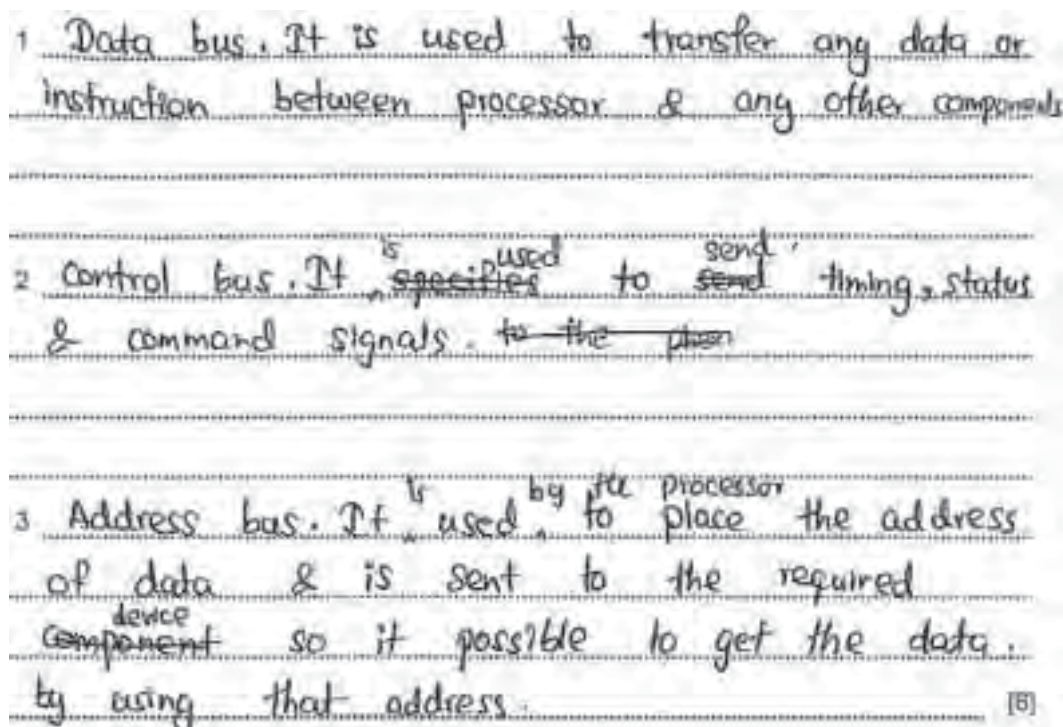 1 Data bus. It is used to transfer any data or
instruction between processor & any other components
2 Control bus. It is used to send timing, status
& command signals.
3 Address bus. It is used by the processor to place the address
of data & is sent to the required
device so it possible to get the data.
by using that address. [6]